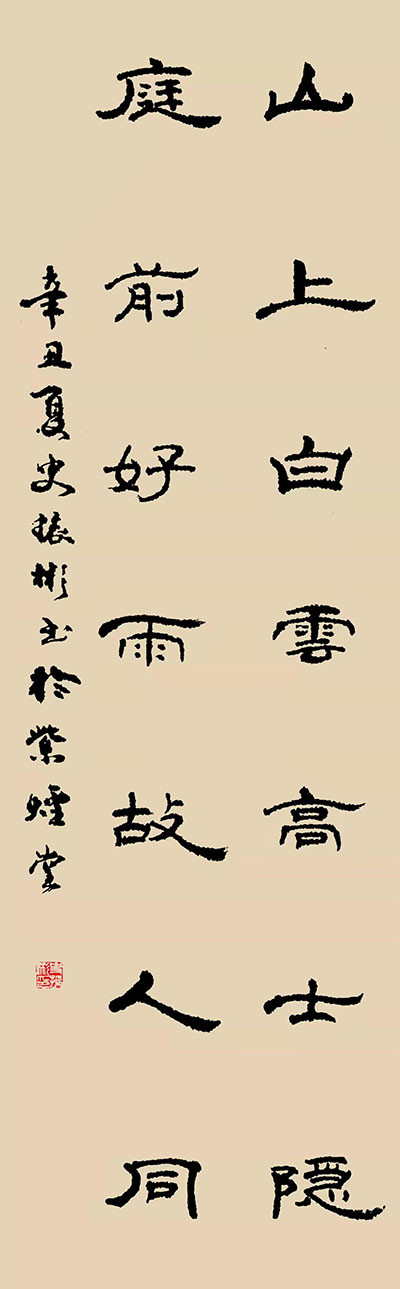 山上白雲高士隐
庭前好雨故人同
辛丑夏史振彬书於紫蟶堂